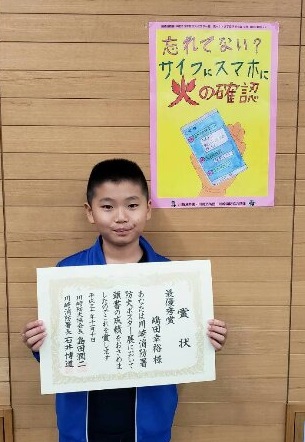 忘れてない？
サイフにスマホに
火の確認
賞状
最優秀賞
嶋田幸裕様
あなたは川崎消防署
防火ポスター展において
頭書の成績をおさめま
したのでこれを賞します
川崎防火協会会長 島田潤二
川崎消防署長 石井博道